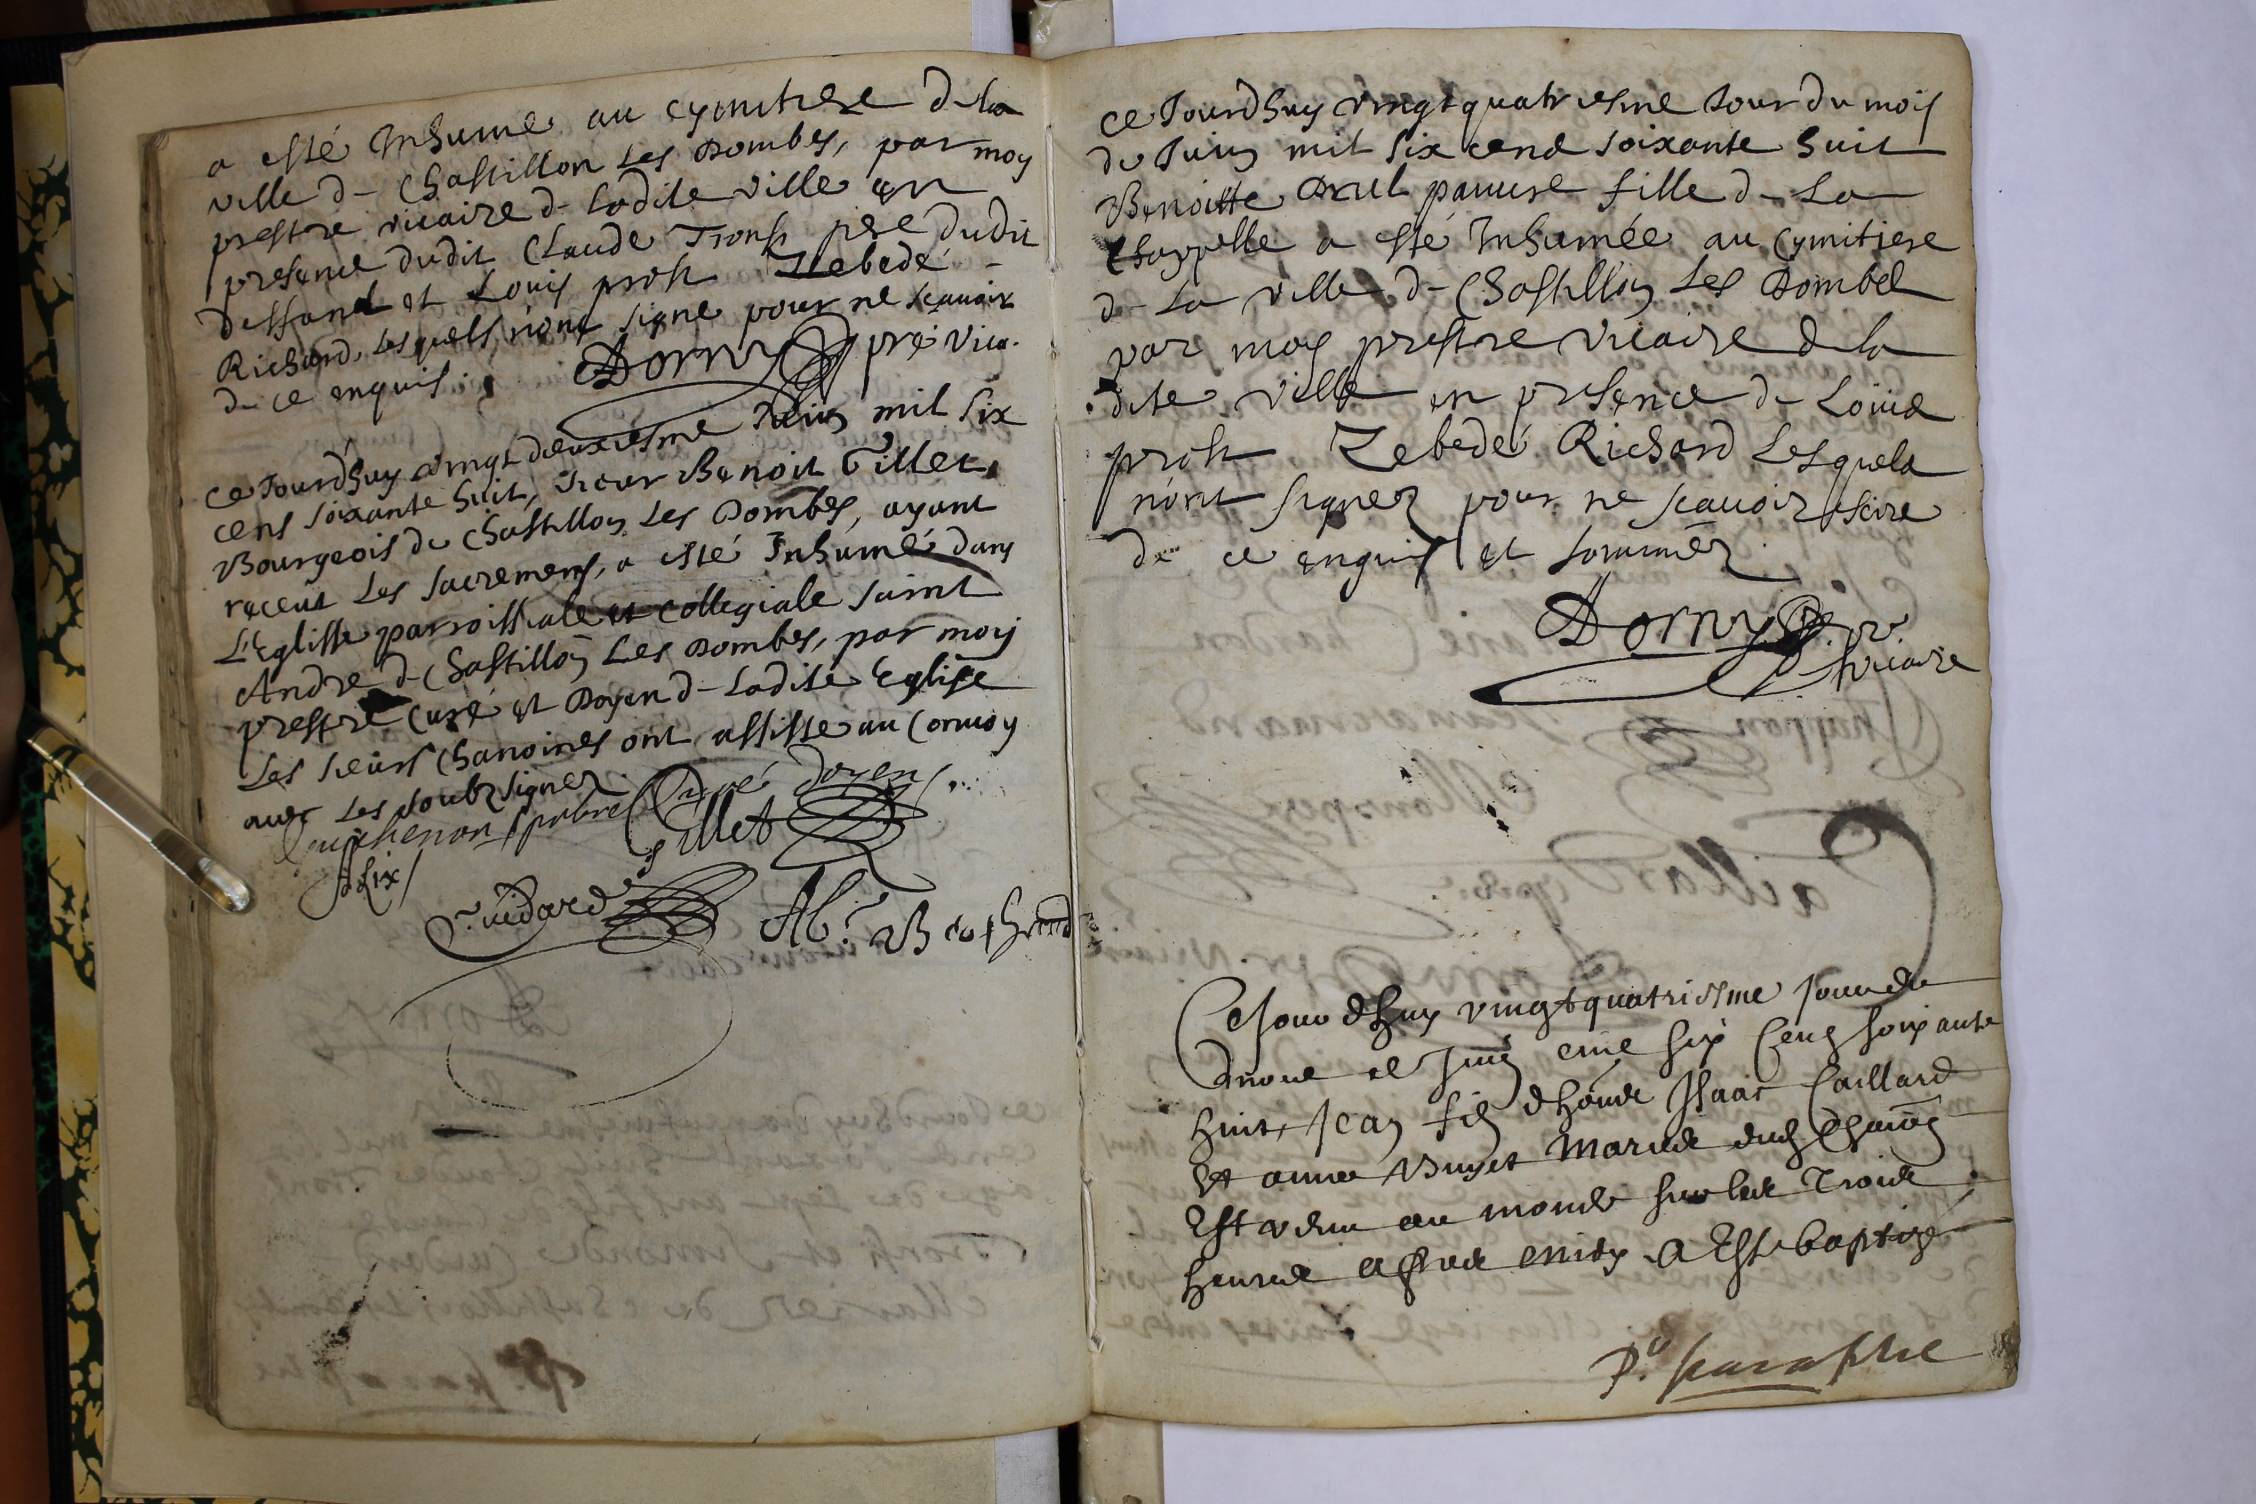 a esté Inhumé au cymitiere d la
ville d Chastillon Les Dombes, par moy
prestre vicaire d Ladite ville en
presence dudit Claude Tronf pere dudit
deffunct et Louis prost Zebedé
Richard, Lesquels n'ont signé pour ne scauoir
de ce enquis.
Dorny pre vica.
Ce Jourd'huy vingt deuxiesme Juin mil six
cens soixante huit, sieur Benoit Gillet,
Bourgeois de Chastillon Les Dombes, ayant
receut Les sacremens, a esté Inhumé dans
L'Eglisse parroissiale et Collegiale saint
Andre d Chastillon Les Dombes, par moy
prestre Curé et Doyen d Ladite Eglise
Les sieurs Chanoines ont assisté au Conuoy
auec Les soubz signez.
Curé doyen
Gillet
Guidard
Ce Jourd'huy vingt quatriesme Jour du mois
de Juin mil six cens soixante huit
Benoitte pauure fille d La
Chappelle a esté Inhumée au Cymitiere
d La ville d Chastillon Les Dombes
par moy prestre vicaire d la
dite ville en presence d Loüis
prost Zebedé Richard Lesquels
n'ont signez pour ne scauoir escire
de ce enquis et sommez
Dorny
vicaire
Ce Jour dhuy vingt quatriesme Jour du
de Juin mil six Cens soixante
huit, Jean fils dhonn Isaac Caillard
Et anne Buget Maries dud Chaon
Est venu au monde sur les Trois
heures apres midy A Este baptizé
P. paraphe